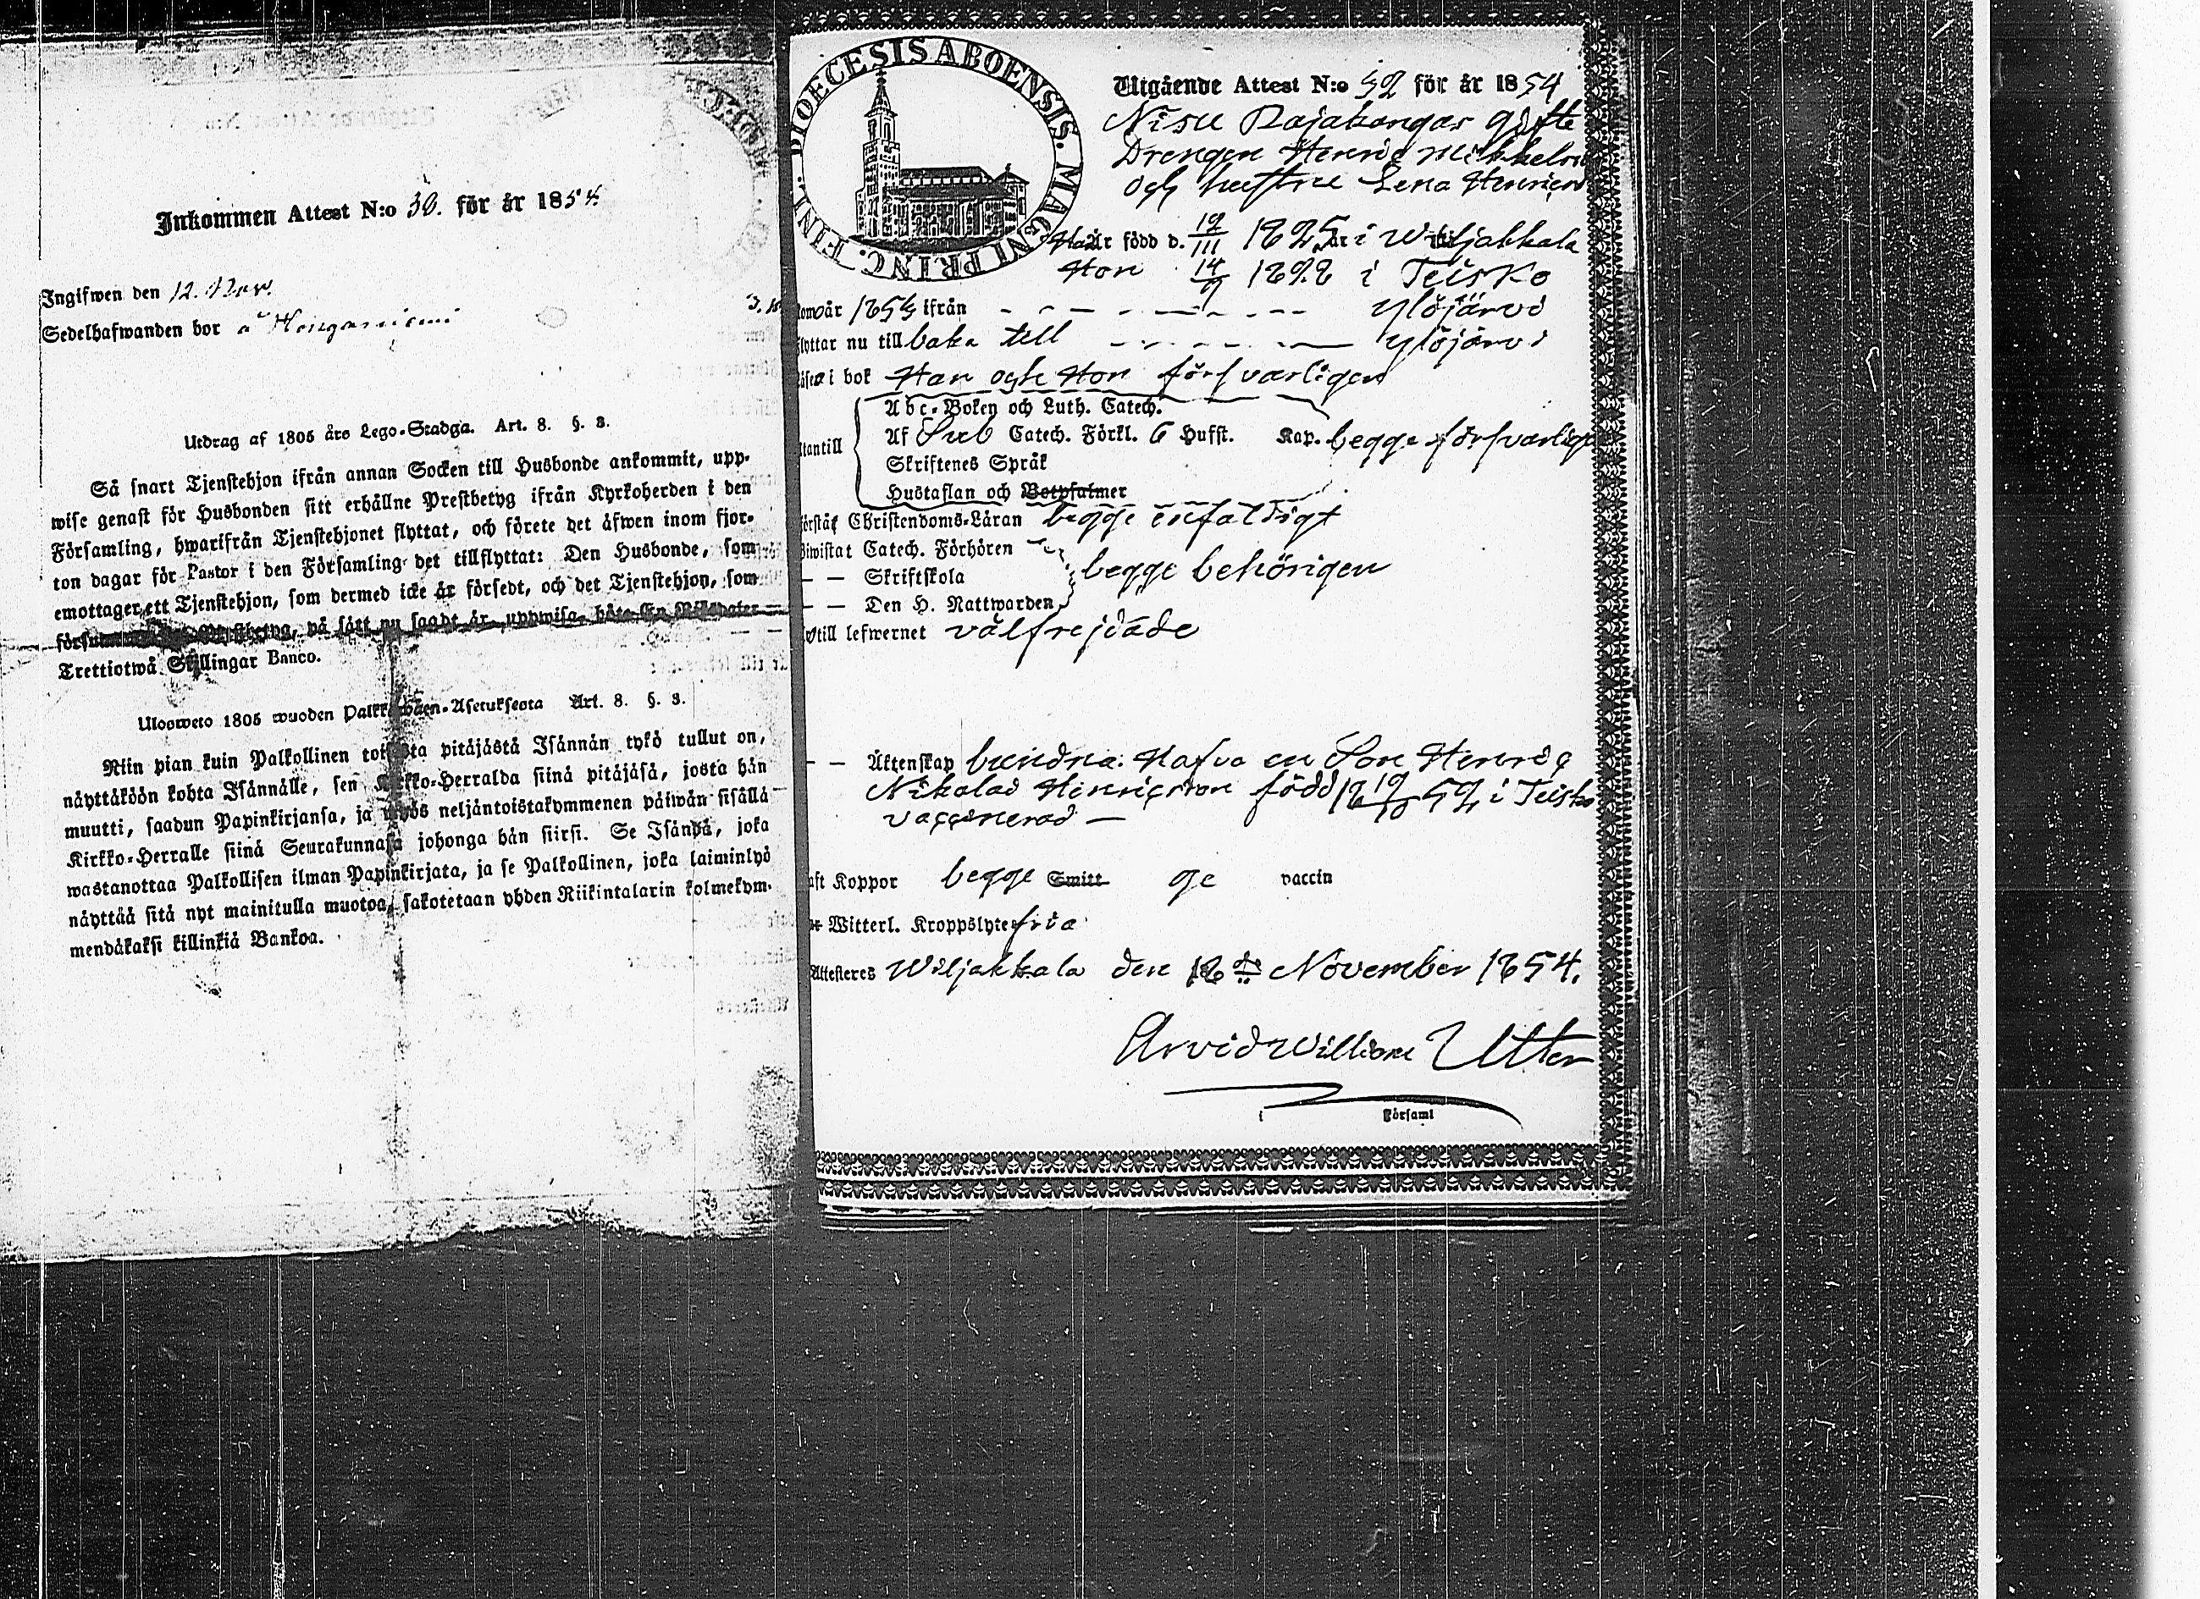 Inkommen Attest N:o 30. för år 1854.
Ingifwen den 12. Nov.
Sedelhafwanden bor å
Utdrag af 1805 års Lego-Stadga. Art. 8. §. 3.
Så snart Tjenstehjon ifrån annan Socken till Husbonde ankommit, upp-
wise genast för Husbonden sitt erhållne Prestbetyg ifrån Kyrkoherden i den
Församling, hwarifrån Tjenstehjonet flyttat, och förete det äfwen inom fjor-
ton dagar för Pastor i den Församling det tillflyttat: Den Husbonde, som
emottager ett Tjenstehjon, som dermed icke är försedt, och det Tjenstehjon, som
på sätt nu sagdt är, uppwisa, böte En Riksdaler
Trettiotwå Skillingar Banco.
Ulosweto 1805 wuoden Palkkawäen-Asetuksesta Art. 8. §. 3.
Niin pian kuin Palkollinen toisesta pitäjästä Isännän tykö tullut on,
näyttäköön kohta Isännälle, sen Kirkko-Herralda siinä pitäjäsä, josta hän
muutti, saadun Papinkirjansa, ja myös neljäntoistakymmenen päiwän sisällä
Kirkko-Herralle siinä Seurakunnasa johonga hän siirsi. Se Isändä, joka
wastanottaa Palkollisen ilman Papinkirjata, ja se Palkollinen, joka laiminlyö
näyttää sitä nyt mainitulla muotoa, sakotetaan yhden Riikintalarin kolmekym-
mendäkaksi killinkiä Bankoa.
DIOECESIS ABOENSIS. MAGNI PRINC. FINL.
Utgående Attest N:o 52 för år 1854
Nisu Rajakangas gifte
Drengen Henric Mikkelss
och hustru Lena Henrics
Han Är född d. 12/III 1825 i Wiljakkala
Hon 14/9 1828 i Teisko
år 1854 ifrån Ylöjärvi
flyttar nu tillbaka till Ylöjärvi
i bok Han och Hon försvarligen
Abc-Boken och Luth. Catech.
utantill Af Sveb Catech. Förkl. 6 Hufst. Kap. begge försvarlige
Skriftenes Språk
Hustaflan och Botpsalmer
förstår Christendoms-Läran begge enfaldigt
Biwistat Catech. Förhören
— — Skriftskola begge behörigen
— — Den H. Nattwarden
till lefwernet välfrejdade
— — Äktenskap bundna. Hafva en Son Henric
Nikolas Henricsson född i Teisko
vaccinerad —
haft Koppor begge Smitt ge vaccin
Witterl. Kroppslyte fria
Attesteres Wiljakkala den 18de November 1854.
Arvid William Utter
i Församl